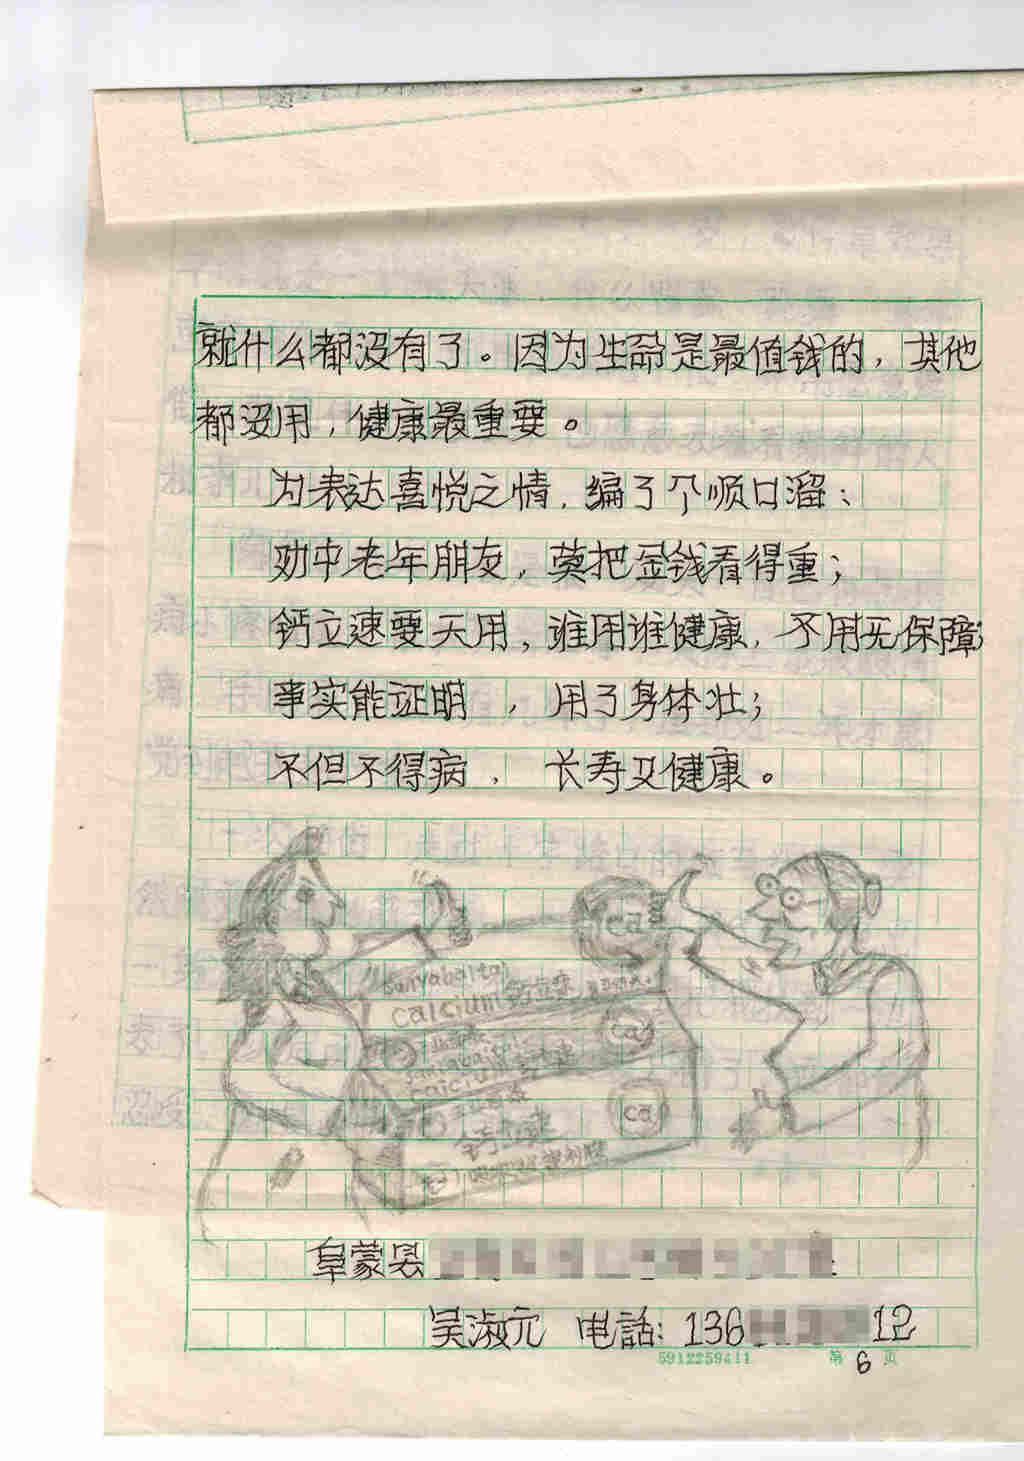 就什么都没有了。因为生命是最值钱的，其他
都没用，健康最重要。
为表达喜悦之情，编了个顺口溜：
劝中老年朋友，莫把金钱看得重；
钙立速要天用，谁用谁健康，不用无保障；
事实能证明，用了身体壮；
不但不得病，长寿又健康。
ca
calcium 钙立速
ca
calcium
ca
钙立速
阜蒙县
吴淑元 电话：136 12
5912259411 第6页